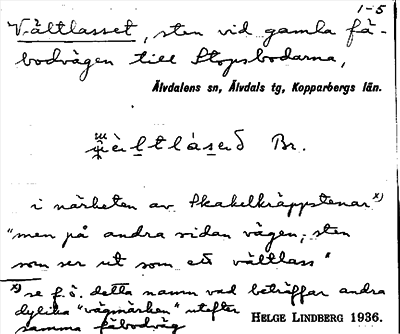 1-5
Vältlasset, sten vid gamla fä-
bodvägen till Stopsbodarna,
Älvdalens sn, Älvdals tg, Kopparbergs län.
Br.
i närheten av Skakelkräppstenar x)
"men på andra sidan vägen, sten
som ser ut som ett vältlass"
x) se f.ö. detta namn vad beträffar andra
dylika "vägmärken" utefter
samma fäbodväg
HELGE LINDBERG 1936.